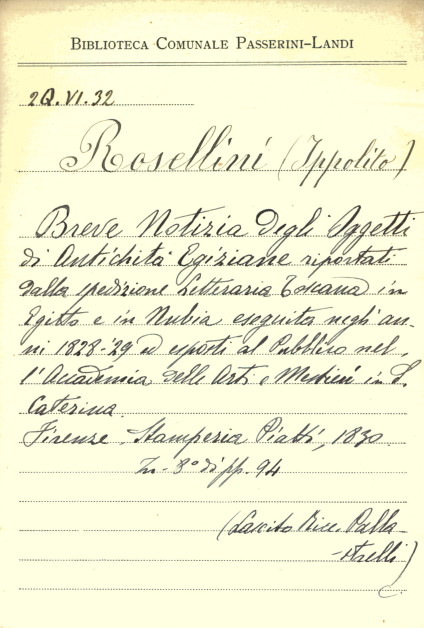 BIBLIOTECA COMUNALE PASSERINI-LANDI
2Q.VI.32
Rosellini (Ippolito)
Breve Notizia degli Oggetti
di Antichità Egiziane riportati
dalla spedizione Letteraria Toscana in
Egitto e in Nubia eseguita negli an-
ni 1828-29 ed esposti al Pubblico nel-
l'Accademia delle Arti e Mestieri in S.
Caterina
Firenze. Stamperia Piatti, 1830.
In-8° di pp. 94
(Lascito Bice Palla-
-strelli)